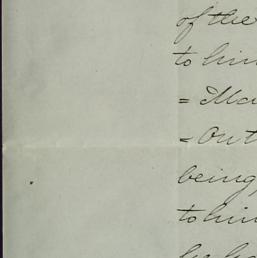 of the
to him
= Ma
= Out
being,
to him
by ha